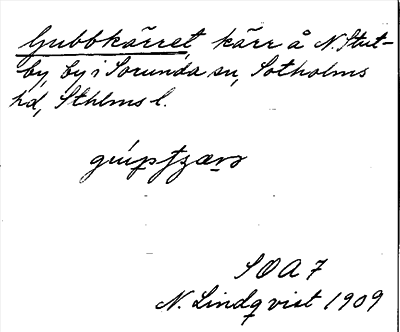 Gubbkärret, kärr å N. Stut-
by, by i Sorunda sn, Sotholms
hd, Sthlms l.
SOA 7
N. Lindqvist 1909